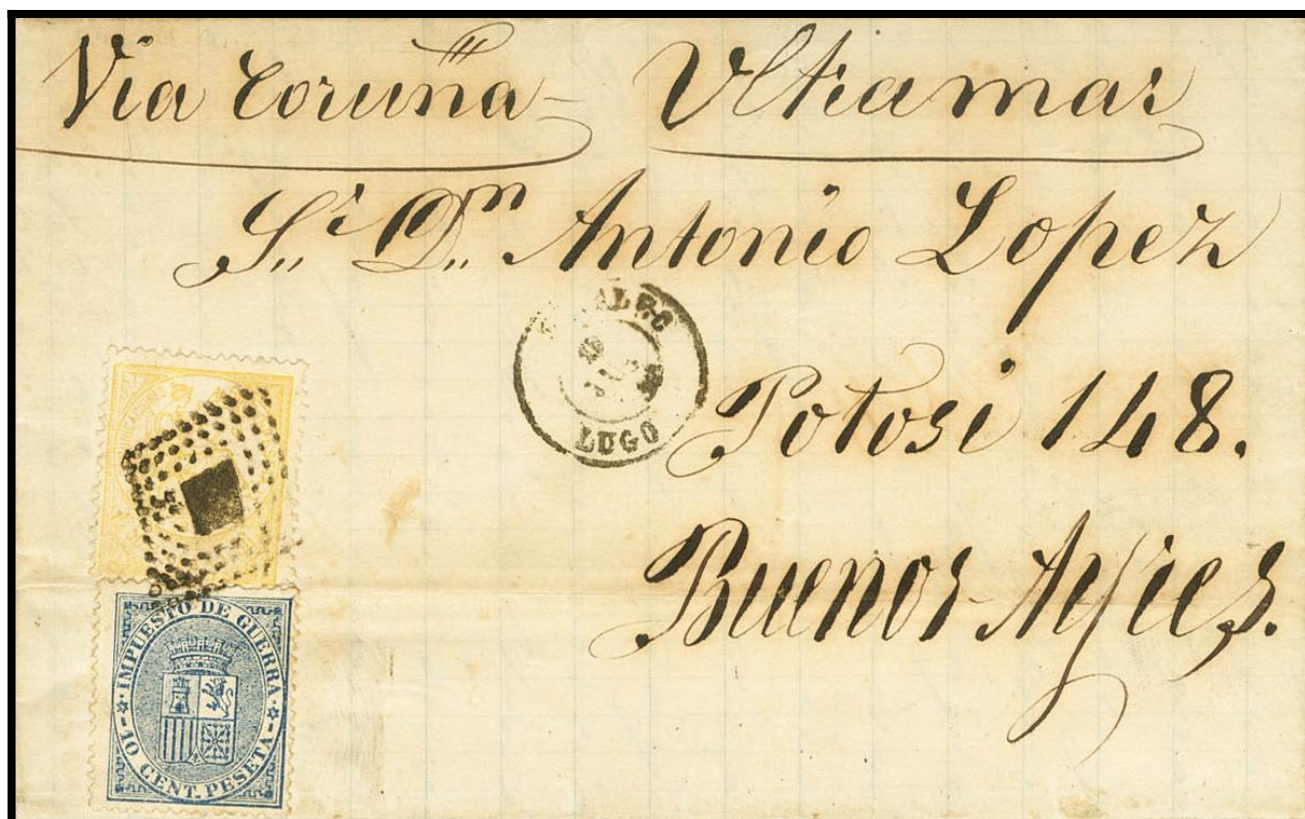 Via Coruña= Ultramar
Sr. Dn. Antonio Lopez
LUGO
Potosi 148.
Buenos Ayres.
IMPUESTO DE GUERRA
10 CENT. PESETA